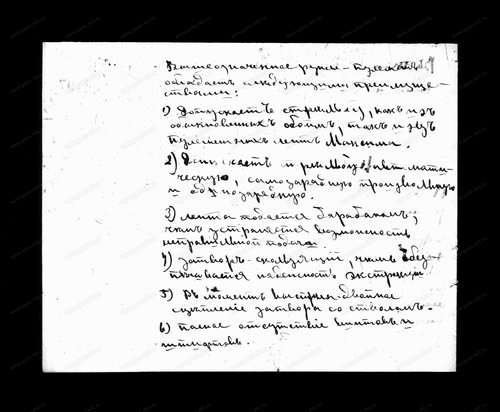 Вышеозначенное ружье-пулеметъ
обладаетъ следующими преимуще-
ствами:
1) Допускаетъ стрельбу, какъ изъ
обыкновенныхъ обоймъ, такъ и изъ
пулеметныхъ лентъ Максима.
2) Допускаетъ и стрельбу автомати-
ческую, самозарядную произвольную
и однозарядную.
3) лента подается барабаномъ,
чемъ устраняется возможность
неправильной подачи
4) затворъ-скользящiй, чемъ обез-
печивается надежность экстракцiи
5) въ моментъ выстрела-двойное
сцепленiе затвора со стволомъ.
6) полное отсутствiе винтовъ и
штифтовъ.